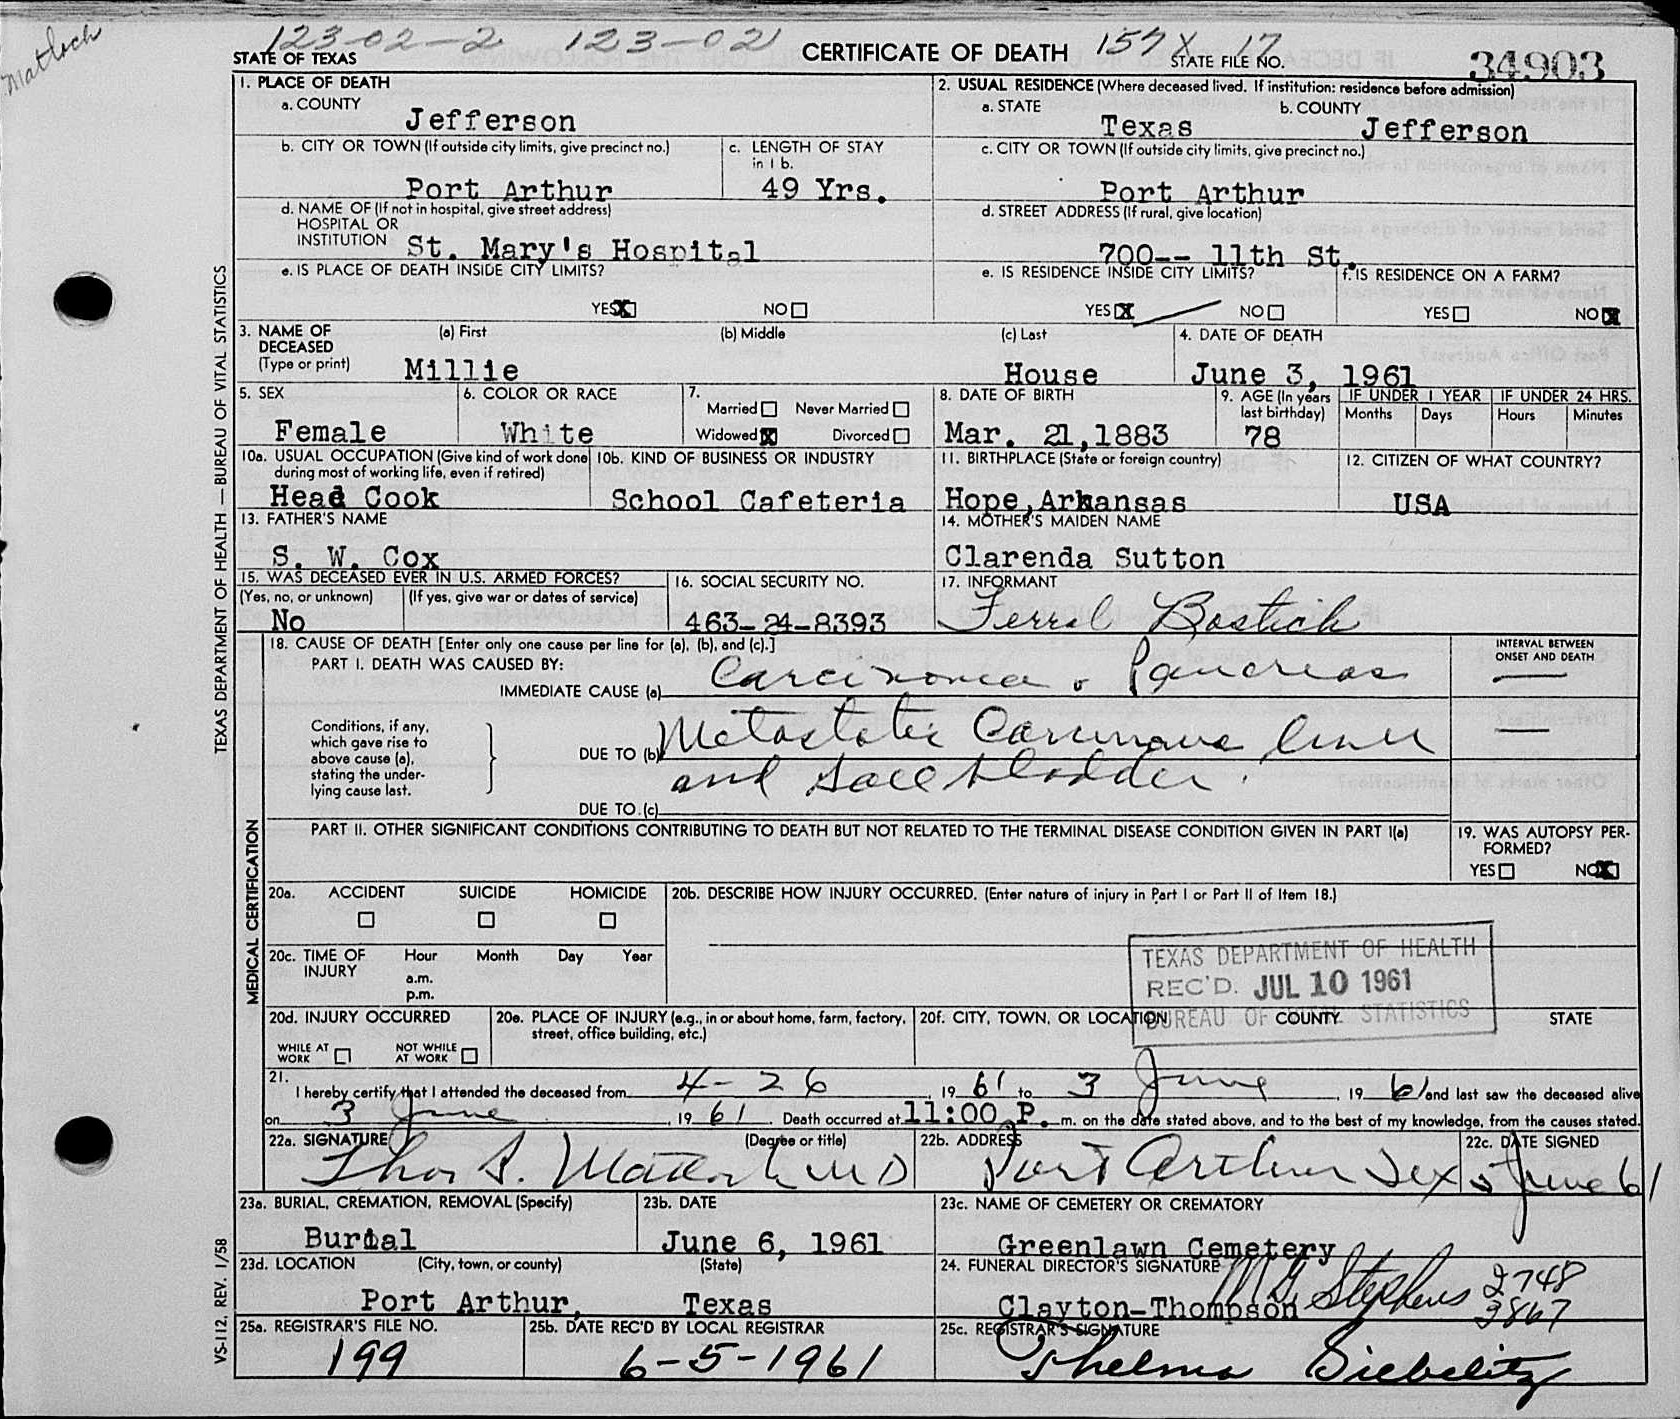 Matloch
123-02-2 123-021 CERTIFICATE OF DEATH 157 X 17
STATE OF TEXAS STATE FILE NO. 34903
1. PLACE OF DEATH
a. COUNTY
Jefferson
2. USUAL RESIDENCE (Where deceased lived. If institution: residence before admission)
a. STATE b. COUNTY
Texas Jefferson
b. CITY OR TOWN (If outside city limits, give precinct no.)
Port Arthur
c. LENGTH OF STAY in 1 b.
49 Yrs.
c. CITY OR TOWN (If outside city limits, give precinct no.)
Port Arthur
d. NAME OF (If not in hospital, give street address)
HOSPITAL OR
INSTITUTION St. Mary's Hospital
d. STREET ADDRESS (If rural, give location)
700-- 11th St.
e. IS PLACE OF DEATH INSIDE CITY LIMITS?
YES X NO
e. IS RESIDENCE INSIDE CITY LIMITS?
YES X NO
f. IS RESIDENCE ON A FARM?
YES NO X
3. NAME OF DECEASED (Type or print)
(a) First (b) Middle (c) Last
Millie House
4. DATE OF DEATH
June 3, 1961
5. SEX
Female
6. COLOR OR RACE
White
7.
Married Never Married
Widowed X Divorced
8. DATE OF BIRTH
Mar. 21,1883
9. AGE (In years last birthday)
78
IF UNDER 1 YEAR IF UNDER 24 HRS.
Months Days Hours Minutes
10a. USUAL OCCUPATION (Give kind of work done during most of working life, even if retired)
Head Cook
10b. KIND OF BUSINESS OR INDUSTRY
School Cafeteria
11. BIRTHPLACE (State or foreign country)
Hope, Arkansas
12. CITIZEN OF WHAT COUNTRY?
USA
13. FATHER'S NAME
S. W. Cox
14. MOTHER'S MAIDEN NAME
Clarenda Sutton
15. WAS DECEASED EVER IN U.S. ARMED FORCES?
(Yes, no, or unknown) (If yes, give war or dates of service)
No
16. SOCIAL SECURITY NO.
463-24-8393
17. INFORMANT
Ferrel Bostick
18. CAUSE OF DEATH [Enter only one cause per line for (a), (b), and (c).]
PART I. DEATH WAS CAUSED BY:
INTERVAL BETWEEN ONSET AND DEATH
IMMEDIATE CAUSE (a) Carcinoma Pancreas
Conditions, if any, which gave rise to above cause (a), stating the underlying cause last.
DUE TO (b) Metastatic Carcinoma liver
and Gall bladder.
DUE TO (c)
PART II. OTHER SIGNIFICANT CONDITIONS CONTRIBUTING TO DEATH BUT NOT RELATED TO THE TERMINAL DISEASE CONDITION GIVEN IN PART I(a)
19. WAS AUTOPSY PERFORMED?
YES NO X
20a. ACCIDENT SUICIDE HOMICIDE
20b. DESCRIBE HOW INJURY OCCURRED. (Enter nature of injury in Part I or Part II of Item 18.)
20c. TIME OF INJURY Hour Month Day Year
a.m.
p.m.
TEXAS DEPARTMENT OF HEALTH
REC'D. JUL 10 1961
BUREAU OF STATISTICS
20d. INJURY OCCURRED
WHILE AT WORK NOT WHILE AT WORK
20e. PLACE OF INJURY (e.g., in or about home, farm, factory, street, office building, etc.)
20f. CITY, TOWN, OR LOCATION COUNTY STATE
21.
I hereby certify that I attended the deceased from 4-26, 1961 to 3 June, 1961 and last saw the deceased alive
on 3 June, 1961. Death occurred at 11:00 P. m. on the date stated above, and to the best of my knowledge, from the causes stated.
22a. SIGNATURE (Degree or title)
Thos S. Matlock MD
22b. ADDRESS
Port Arthur Tex
22c. DATE SIGNED
5 June 61
23a. BURIAL, CREMATION, REMOVAL (Specify)
Burial
23b. DATE
June 6, 1961
23c. NAME OF CEMETERY OR CREMATORY
Greenlawn Cemetery
23d. LOCATION (City, town, or county) (State)
Port Arthur, Texas
24. FUNERAL DIRECTOR'S SIGNATURE
Clayton-Thompson M G Stephens 2748
3867
25a. REGISTRAR'S FILE NO.
199
25b. DATE REC'D BY LOCAL REGISTRAR
6-5-1961
25c. REGISTRAR'S SIGNATURE
Thelma Siebelitz
TEXAS DEPARTMENT OF HEALTH — BUREAU OF VITAL STATISTICS
MEDICAL CERTIFICATION
VS-112, REV. 1/58